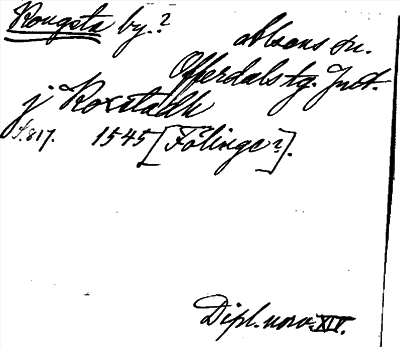 Rougsta by.?
Alsens sn.
Offerdals tg. Jmt.
j Roxstadh
s. 817. 1545 [Fölinge?].
Dipl. norv. XIV.